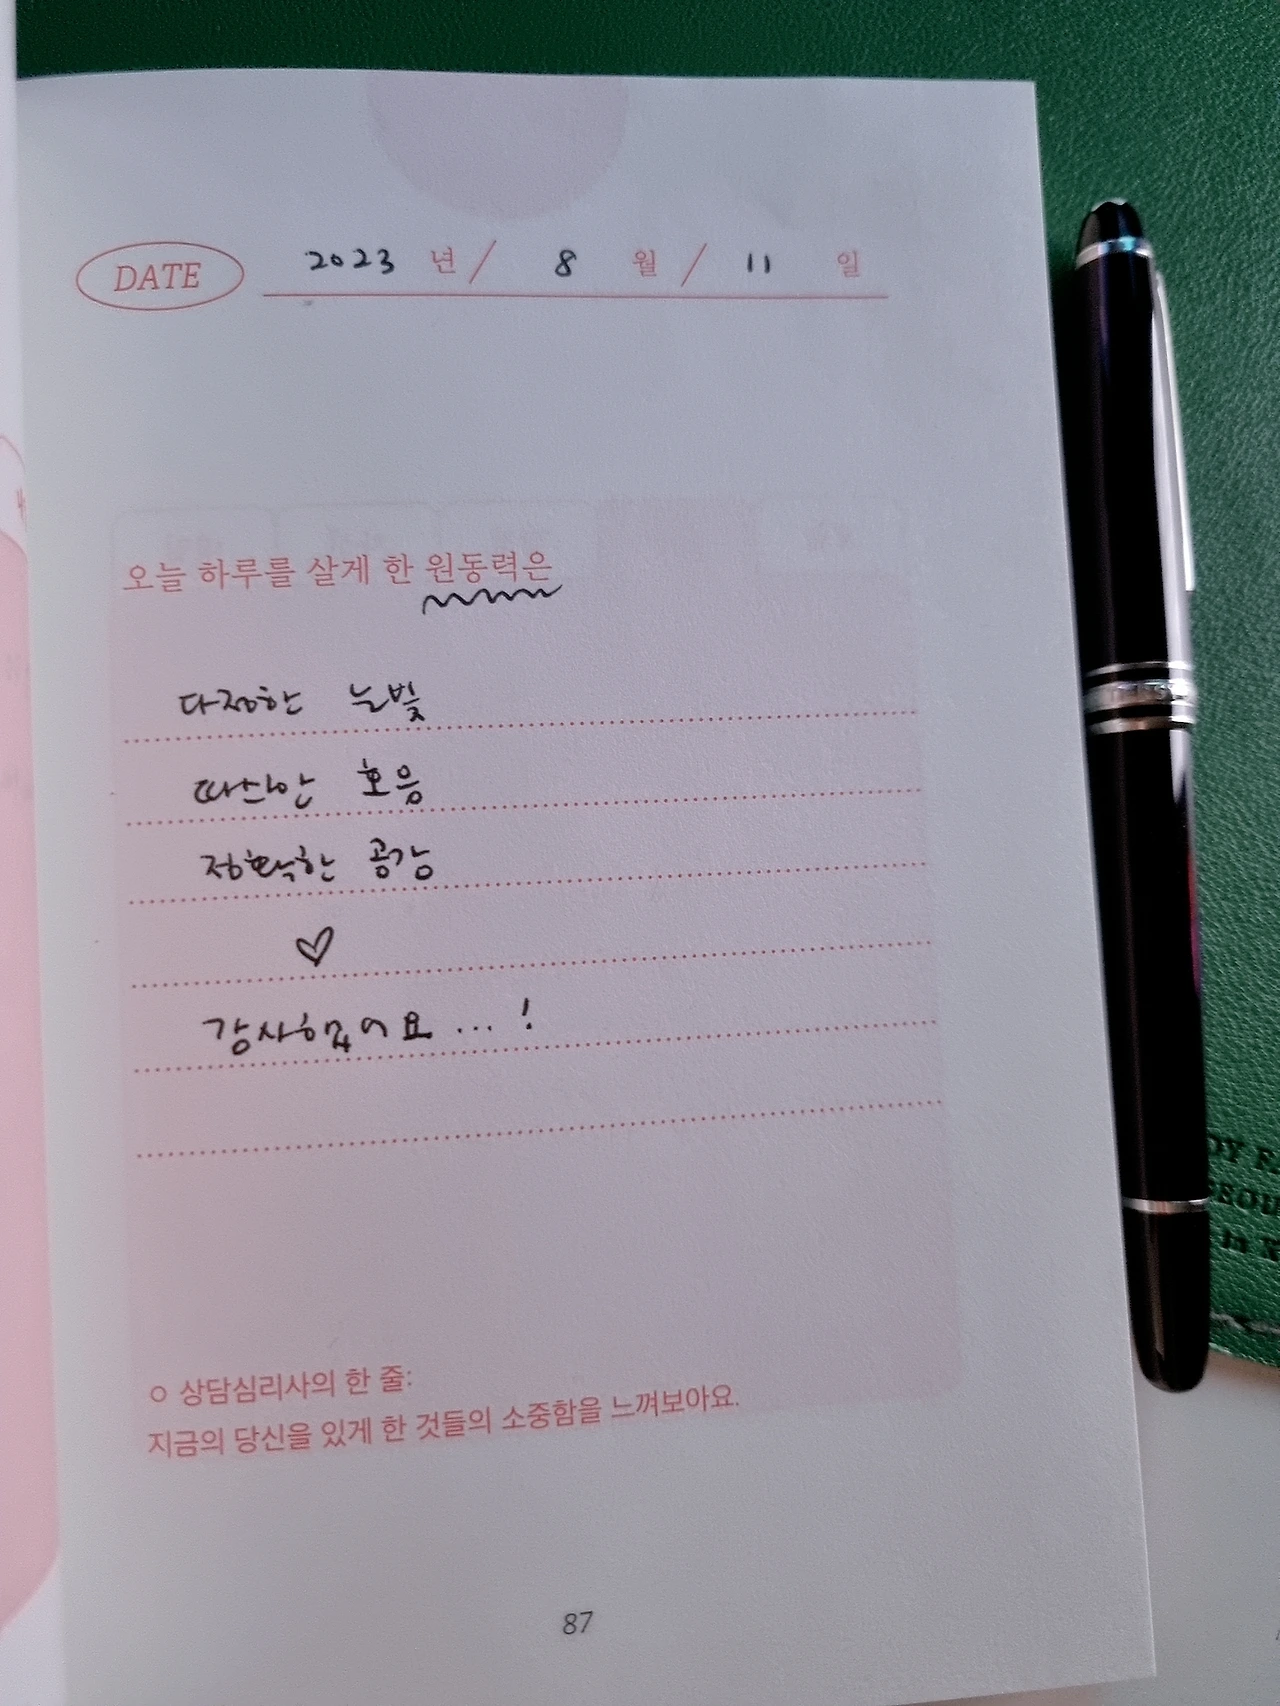 DATE 2023 년 / 8 월 / 11 일
오늘 하루를 살게 한 원동력은
다정한 눈빛
따스한 호응
정확한 공감
♡
감사했어요 ... !
상담심리사의 한 줄:
지금의 당신을 있게 한 것들의 소중함을 느껴보아요.
87